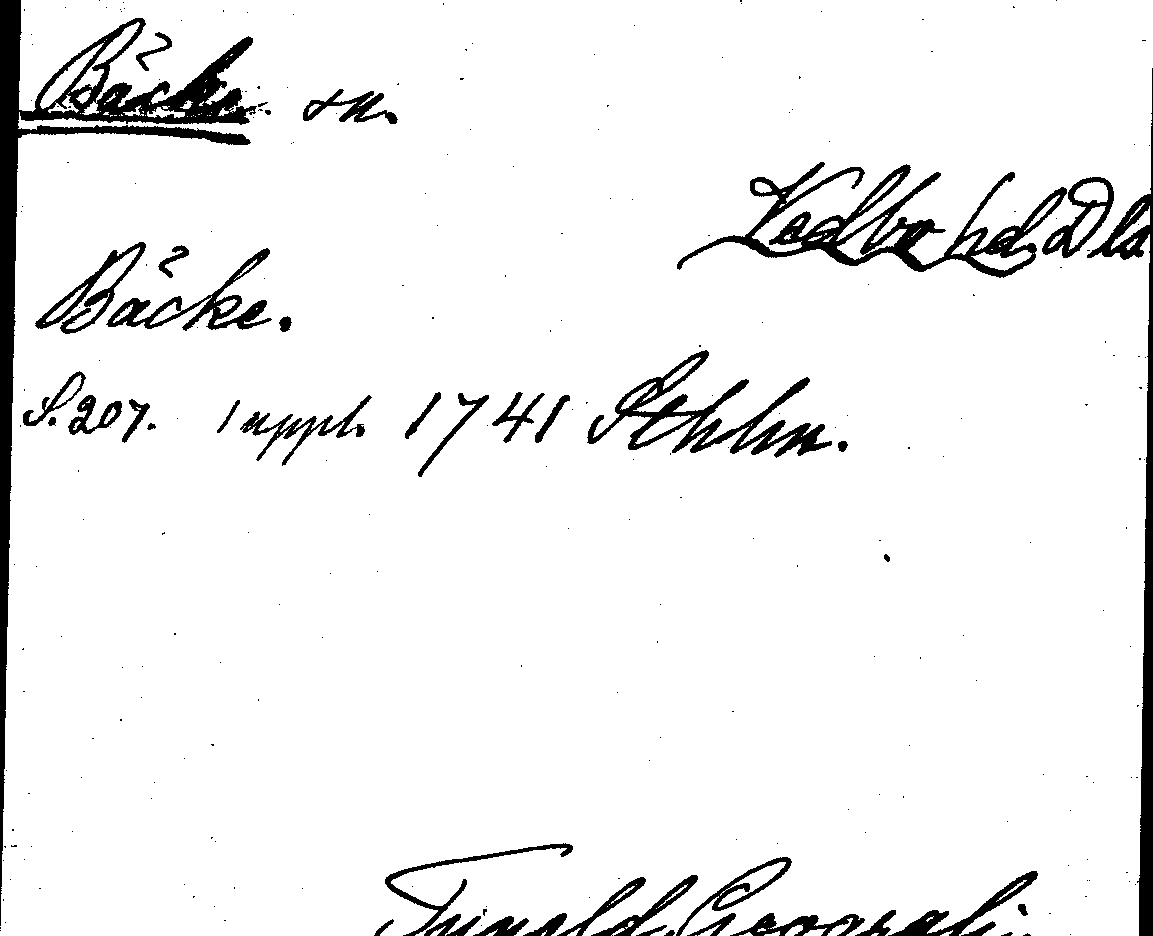 Bäcke sn.
Vedbo hd. Dld
Bäcke.
S. 207. 1 uppl. 1741 Sthlm.
Tuneld, Geografi